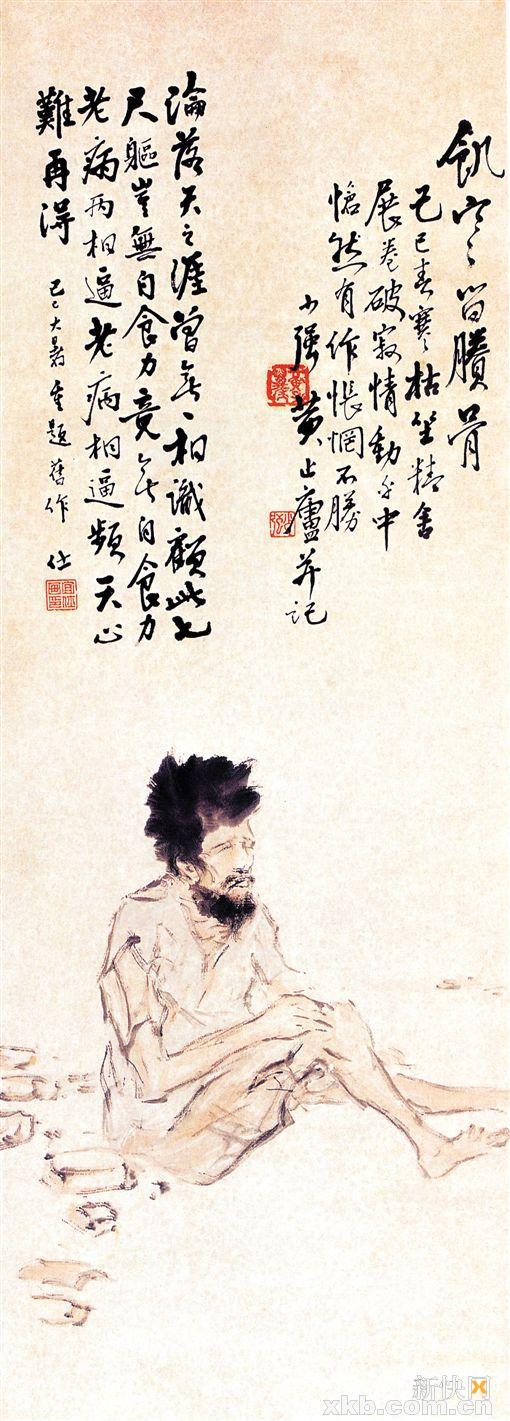 飢寒留賸骨
己巳春寒枯坐精舍
展卷破寂情動乎中
愴然有作悵惘不勝
少强黄止廬并記
淪落天之涯曾無一相識顧此七
尺軀豈無自食力竟無自食力
老病兩相逼老病相逼頻天心
難再得 己巳大暑重題舊作 仕
新快网
xkb.com.cn